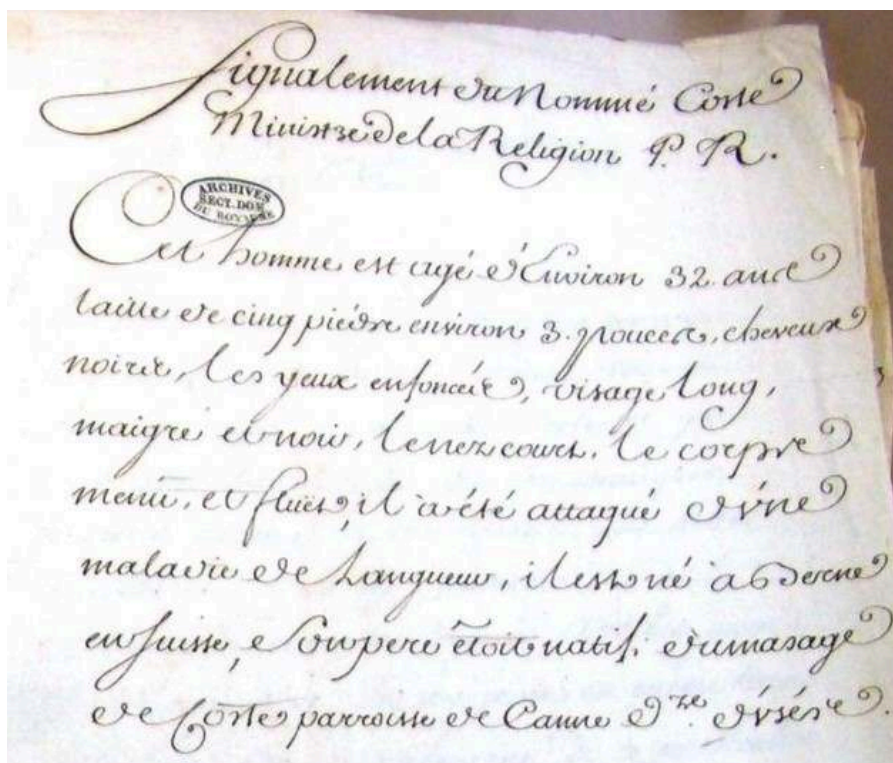 Signalement du Nommé Coste
Ministre de la Religion P. R.
ARCHIVES
SECT. DOM.
DU ROYAUME
Cet homme est agé d'Environ 32. ans
taille de cinq pieds environ 3. pouces, cheveux
noirs, les yeux enfoncés, visage long,
maigre et noir, le nez court, le corps
menu, et fluet, il a été attaqué d'vne
maladie de Langueur, il est né a Berne
en Suisse, Son pere étoit natif du masage
de Coste parroisse de Canne D.se d'vsés.